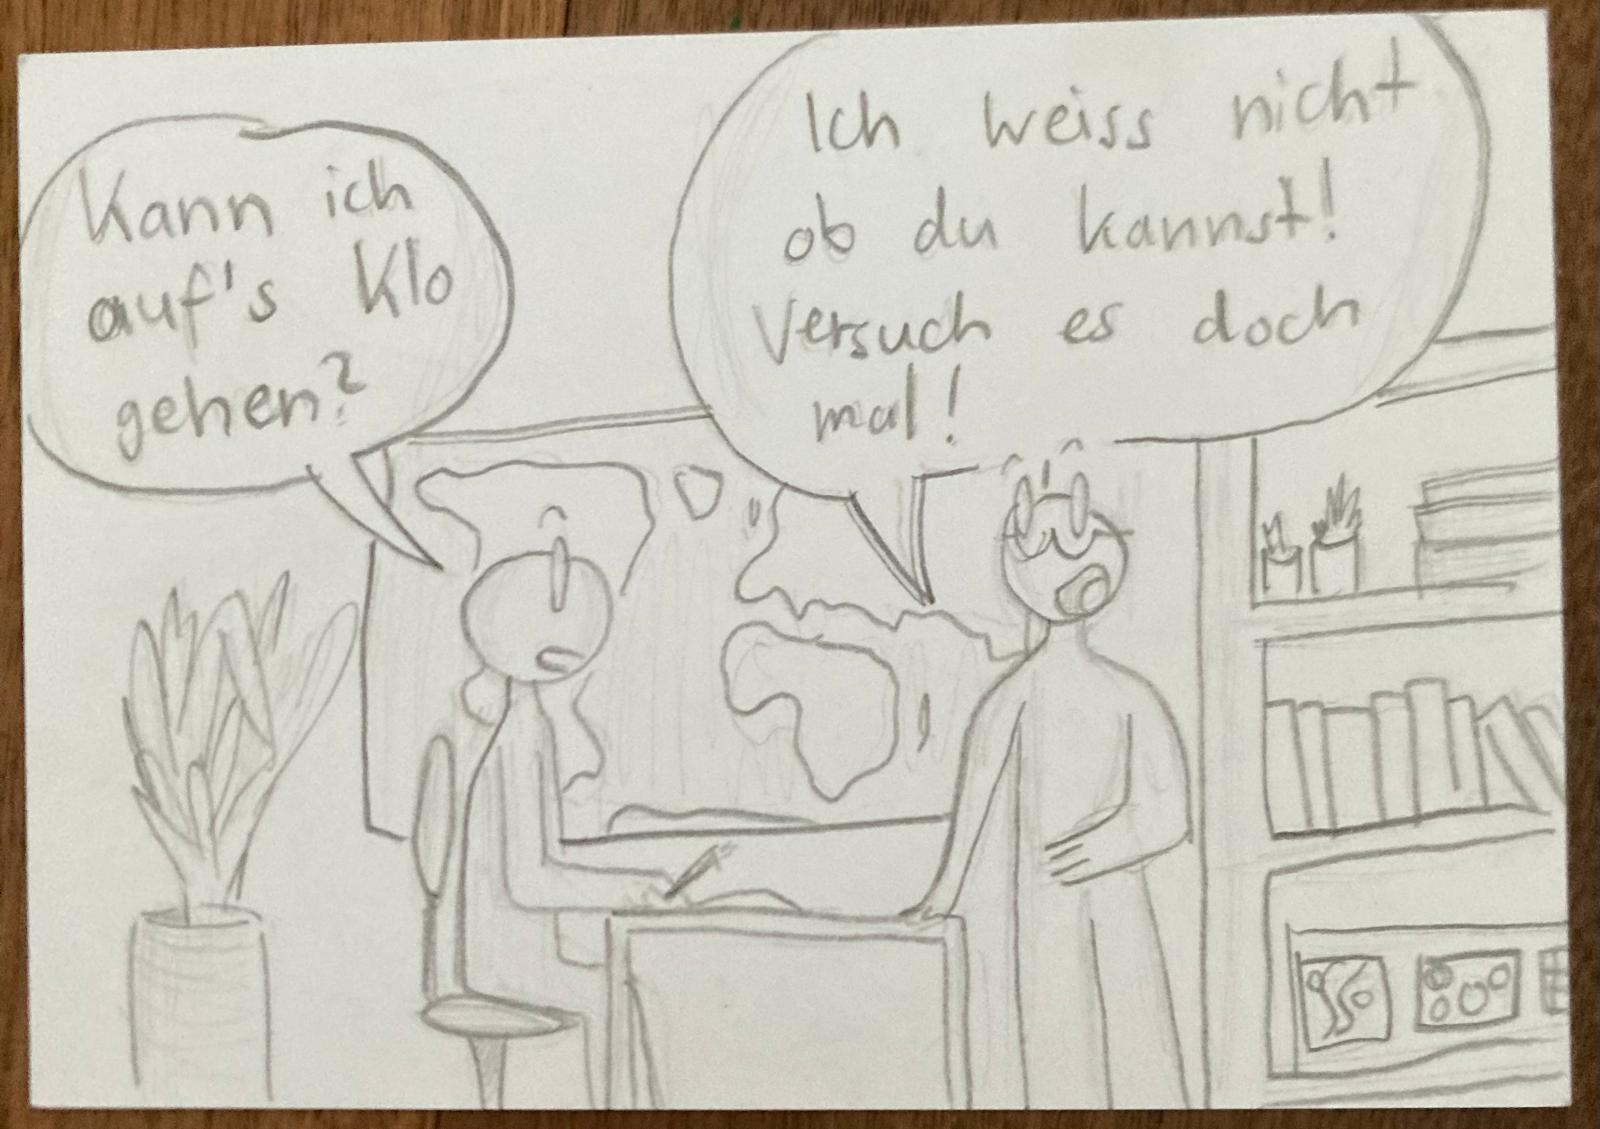 Kann ich
auf's Klo
gehen?
Ich weiss nicht
ob du kannst!
Versuch es doch
mal!